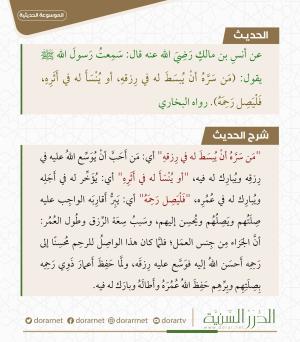 الموسوعة الحديثية
الحديث
عن أنس بن مالكٍ رَضِيَ الله عنه قال: سَمِعتُ رَسولَ الله ﷺ
يقول: (مَن سَرَّهُ أنْ يُبسَطَ له في رِزقِهِ، أو يُنْسَأَ له في أثَرِهِ،
فَلْيَصِلْ رَحِمَهُ). رواه البخاري
شرح الحديث
"مَن سَرَّهُ أنْ يُبسَطَ له في رِزقِهِ" أي: مَن أحَبَّ أنْ يُوَسِّعَ اللهُ عليه في
رِزقِه ويُبارِك له فيه، "أو يُنْسَأَ له في أثَرِهِ" أي: يُؤَخَّر له في أجَلِه
ويُبارك له في عُمرِه، "فَلْيَصِلْ رَحِمَهُ" أي: يَبَرُّ أقاربَه الواجبِ عليه
صِلَتُهم ويَصِلُهم ويُحسِن إليهم، وسَبَبُ سِعَةِ الرِّزق وطُولِ العُمُر:
أنَّ الجزاءَ مِن جِنسِ العمَل؛ فلمَّا كان هذا الواصِلُ للرحِمِ مُحسِنًا إلى
رَحِمِه أحسَنَ اللهُ إليه فوَسَّعَ عليه رِزقَه، ولمَّا حفِظَ أعمارَ ذَوِي رَحِمِه
بصِلَتِهم وبِرِّهم حَفِظَ اللهُ عُمُرَه وأطالَهُ وبارَك له فيه.
dorarnet dorarrnet dorartv
الدرر السنية
www.dorar.net